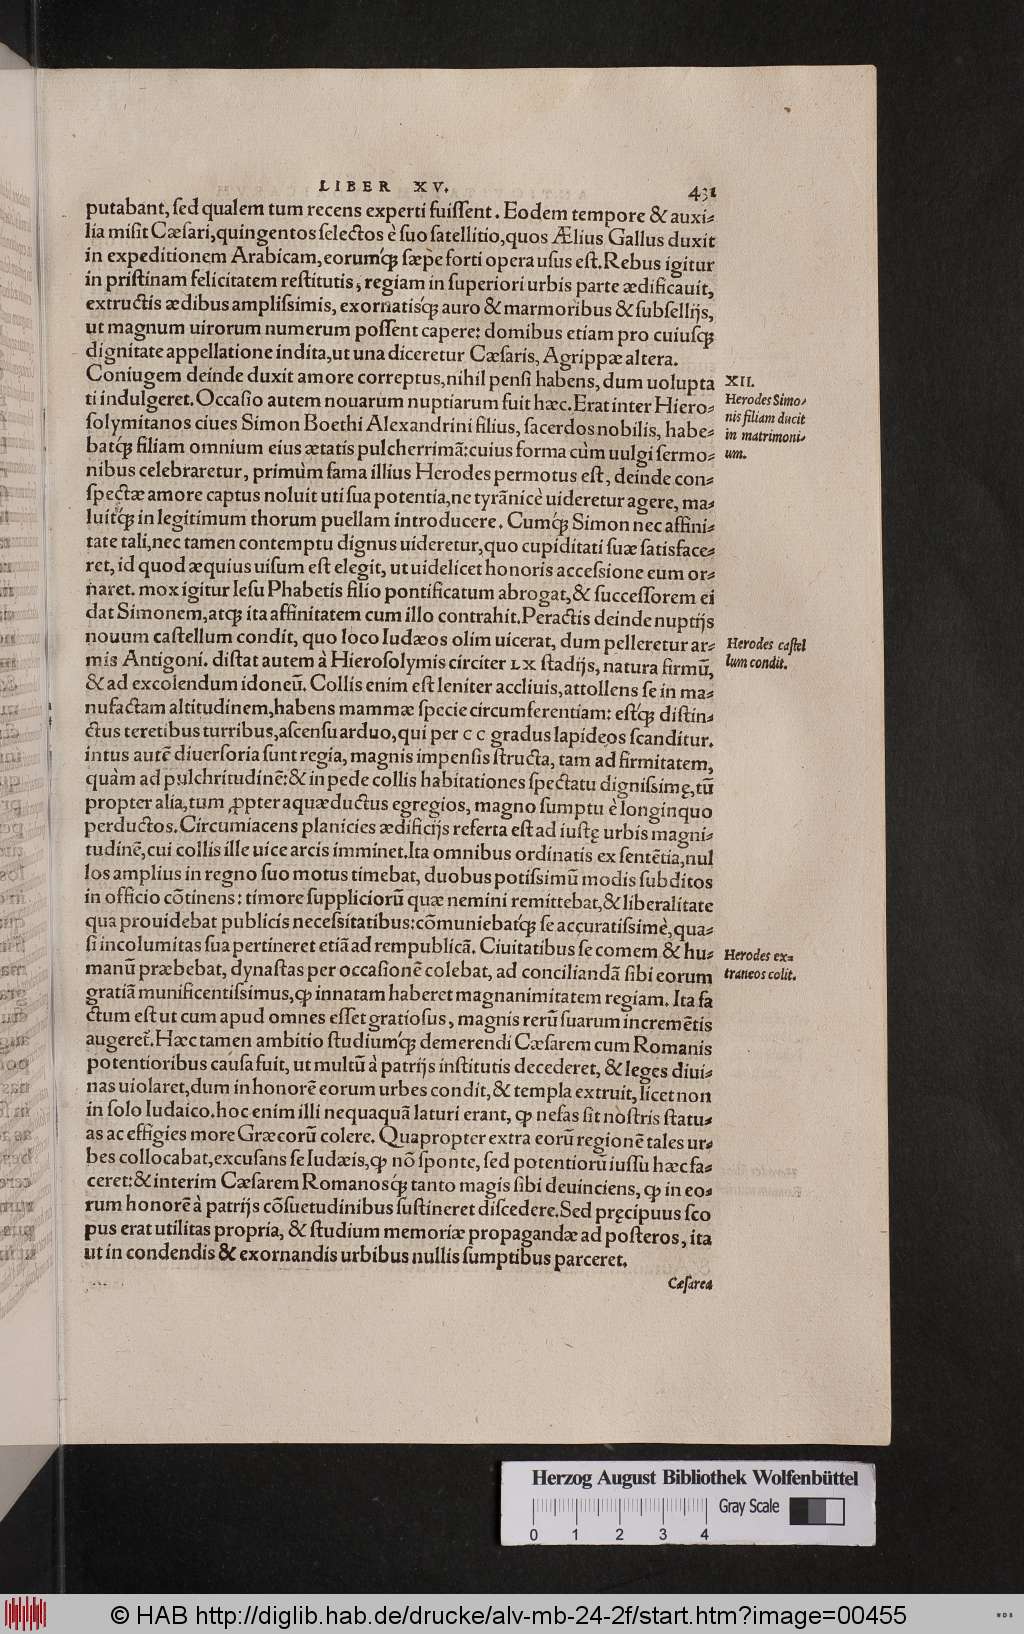 LIBER XV. 431
putabant, ſed qualem tum recens experti fuiſſent. Eodem tempore & auxi-
lia miſit Cæſari, quingentos ſelectos è ſuo ſatellitio, quos Ælius Gallus duxit
in expeditionem Arabicam, eorumq́; ſæpe forti opera uſus eſt. Rebus igitur
in priſtinam felicitatem reſtitutis, regiam in ſuperiori urbis parte ædificauit,
extructis ædibus ampliſsimis, exornatisq́; auro & marmoribus & ſubſellijs,
ut magnum uirorum numerum poſſent capere: domibus etiam pro cuiuſq;
dignitate appellatione indita, ut una diceretur Cæſaris, Agrippæ altera.
Coniugem deinde duxit amore correptus, nihil penſi habens, dum uolupta
ti indulgeret. Occaſio autem nouarum nuptiarum fuit hæc. Erat inter Hiero-
ſolymitanos ciues Simon Boethi Alexandrini filius, ſacerdos nobilis, habe-
batq́; filiam omnium eius ætatis pulcherrimā: cuius forma cùm uulgi ſermo-
nibus celebraretur, primùm fama illius Herodes permotus eſt, deinde con-
ſpectæ amore captus noluit uti ſua potentia, ne tyrānicè uideretur agere, ma-
luitq́; in legitimum thorum puellam introducere. Cumq́; Simon nec affini-
tate tali, nec tamen contemptu dignus uideretur, quo cupiditati ſuæ ſatisface-
ret, id quod æquius uiſum eſt elegit, ut uidelicet honoris acceſsione eum or-
naret. mox igitur Ieſu Phabetis filio pontificatum abrogat, & ſucceſſorem ei
dat Simonem, atq; ita affinitatem cum illo contrahit. Peractis deinde nuptijs
nouum caſtellum condit, quo loco Iudæos olim uicerat, dum pelleretur ar-
mis Antigoni. diſtat autem à Hieroſolymis circiter LX ſtadijs, natura firmũ,
& ad excolendum idoneũ. Collis enim eſt leniter accliuis, attollens ſe in ma-
nufactam altitudinem, habens mammæ ſpecie circumferentiam: eſtq́; diſtin-
ctus teretibus turribus, aſcenſu arduo, qui per CC gradus lapideos ſcanditur.
intus autē diuerſoria ſunt regia, magnis impenſis ſtructa, tam ad firmitatem,
quàm ad pulchritudinē: & in pede collis habitationes ſpectatu digniſsimę, tũ
propter alia, tum ꝓpter aquæductus egregios, magno ſumptu è longinquo
perductos. Circumiacens planicies ædificijs referta eſt ad iuſtę urbis magni-
tudinē, cui collis ille uice arcis imminet. Ita omnibus ordinatis ex ſentētia, nul
los amplius in regno ſuo motus timebat, duobus potiſsimũ modis ſubditos
in officio cōtinens: timore ſuppliciorũ quæ nemini remittebat, & liberalitate
qua prouidebat publicis neceſsitatibus: cōmuniebatq́; ſe accuratiſsimè, qua-
ſi incolumitas ſua pertineret etiā ad rempublicā. Ciuitatibus ſe comem & hu-
manũ præbebat, dynaſtas per occaſionē colebat, ad conciliandā ſibi eorum
gratiā munificentiſsimus, ꝙ innatam haberet magnanimitatem regiam. Ita fa
ctum eſt ut cum apud omnes eſſet gratioſus, magnis rerũ ſuarum incremētis
augeret᷑. Hæc tamen ambitio ſtudiumq́; demerendi Cæſarem cum Romanis
potentioribus cauſa fuit, ut multũ à patrijs inſtitutis decederet, & leges diui-
nas uiolaret, dum in honorē eorum urbes condit, & templa extruit, licet non
in ſolo Iudaico. hoc enim illi nequaquā laturi erant, ꝙ nefas ſit noſtris ſtatu-
as ac effigies more Græcorũ colere. Quapropter extra eorũ regionē tales ur-
bes collocabat, excuſans ſe Iudæis, ꝙ nō ſponte, ſed potentiorũ iuſſu hæc fa-
ceret: & interim Cæſarem Romanosq́; tanto magis ſibi deuinciens, ꝙ in eo-
rum honorē à patrijs cōſuetudinibus ſuſtineret diſcedere. Sed pręcipuus ſco
pus erat utilitas propria, & ſtudium memoriæ propagandæ ad poſteros, ita
ut in condendis & exornandis urbibus nullis ſumptibus parceret.
Cæſarea
XII.
Herodes Simo-
nis filiam ducit
in matrimoni-
um.
Herodes caſtel
lum condit.
Herodes ex-
traneos colit.
Herzog August Bibliothek Wolfenbüttel
Gray Scale
0 1 2 3 4
© HAB http://diglib.hab.de/drucke/alv-mb-24-2f/start.htm?image=00455